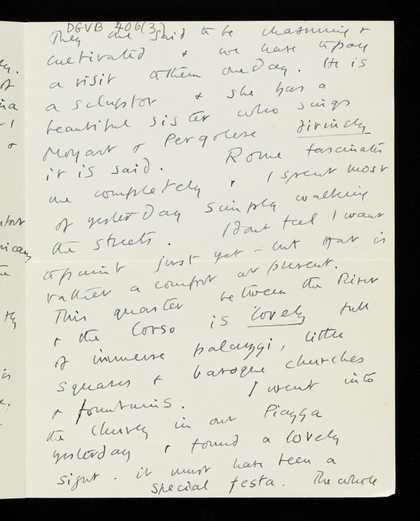 DGVB 406(3)
They are said to be charming &
cultivated & we have to pay
a visit to them one day. He is
a sculptor & she has a
beautiful sister who sings
Mozart & Pergolese divinely
it is said. Rome fascinates
me completely, I spent most
of yesterday simply walking
the streets. I dont feel I want
to paint just yet – but that is
rather a comfort at present.
This quarter between the River
& the Corso is lovely full
of immense palazzi, little
squares & baroque churches
& fountains. I went into
the church in our Piazza
yesterday & found a lovely
sight. it must have been a
special festa. The whole